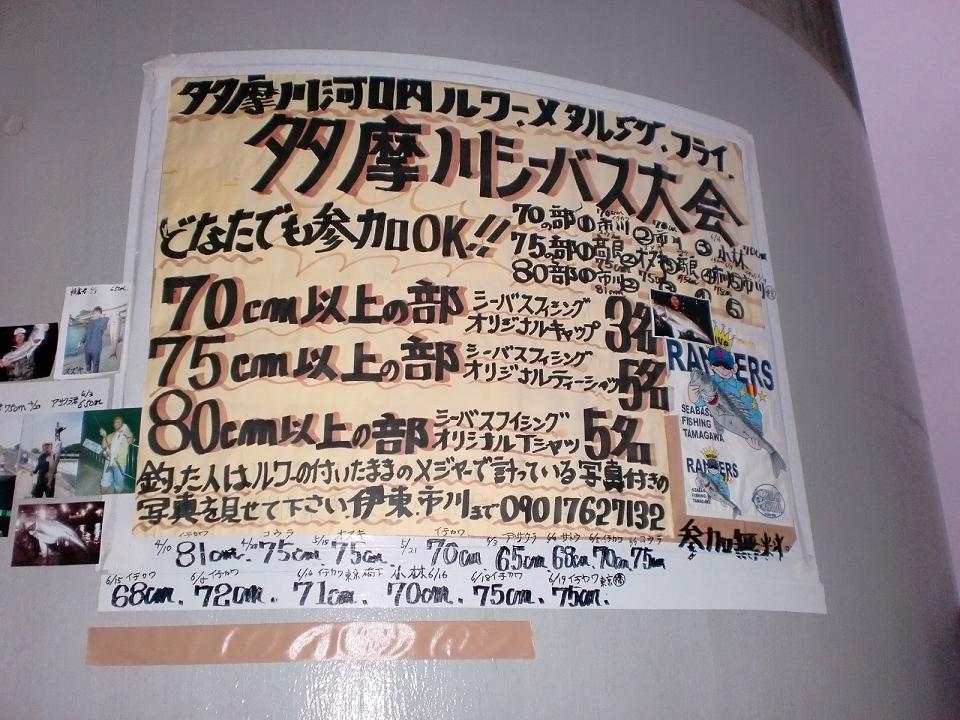 多摩川河口内ルワー、メタルジグ、フライ、
多摩川シーバス大会
どなたでも参加OK!!
70の部の①市川②市川③小林
75の部の①高良②オアキ③高良④市川⑤市川
80部の①市川②
70cm以上の部 シーバスフィシング オリジナルキャップ 3名
75cm以上の部 シーバスフィシング オリジナルティーシャツ 5名
80cm以上の部 シーバスフィシング オリジナルTシャツ 5名
釣った人はルワーの付いたままのメジャーで計っている写真付きの
写真を見せて下さい伊東、市川まで09017627132
参加無料。
RANGERS
SEABASS
FISHING
TAMAGAWA
RANGERS
SEABASS
FISHING
TAMAGAWA
4/10 イチカワ 81cm. コウラ 75cm 75cm. 5/21 イチカワ 70cm アサクラ 65cm サトウ 68cm イチカワ 70cm コウラ 75cm
6/15 イチカワ 68cm. イチカワ 72cm. 6/16 イチカワ 71cm. 小林 6/16 70cm. 6/18 イチカワ 75cm. 6/19 イチカワ 75cm.
スズキ
75cm
アサクラ君 65cm
65cm